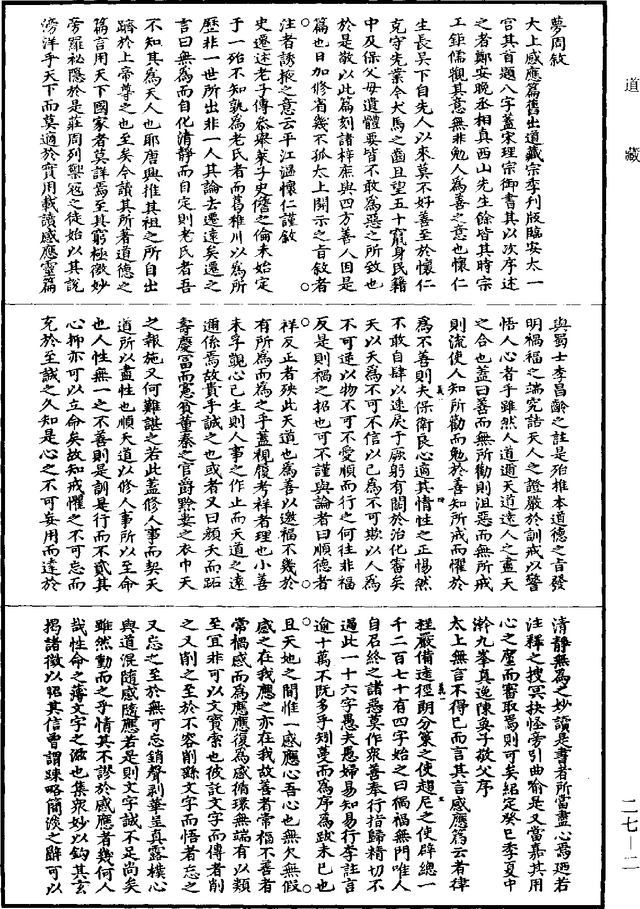 道藏
夢周敘
大上感應篇舊出道藏宗李列版臨安太一
宮其首題八字蓋宋理宗御書其以次序述
之者鄭安晚丞相真西山先生餘皆其時宗
工鉅儒觀其意無非勉人為善之意也懷仁
生長吳下自先人以來莫不好善至於懷仁
克守先業今犬馬之齒且望五十竄身民籍
中及保父母遺體要皆不敢為惡之所致也
於是敬以此篇刻諸梓庶與四方善人因是
篇也日加修省幾不孤太上開示之旨敘者
注者誘掖之意云平江溫懷仁謹敘
史遷述老子傳參舉萊子史儋之倫未始定
于一殆不知孰為老氏者而葛稚川以為所
歷非一世所出非一人其論去遷遠矣遷之
言曰無為而自化清靜而自定則老氏者吾
不知其為天人也耶唐興推其祖之所自出
躋於上帝尊之也至矣今讀其所著道德之
篇言用天下國家者莫詳焉至其窮極微妙
旁羅祕隱於是莊周列禦冠之徒始以其說
滂洋乎天下而莫適於實用載讀感應靈篇
與蜀士李昌齡之註是殆推本道德之旨發
明禍福之端究詰天人之證嚴於訓戒以警
悟人心者乎雖然人道邇天道遠人之盡天
之合也蓋曰善而無所勸則沮惡而無所戒
則流使人知所勸而勉於善知所戒而懼於
為不善則夫保衛良心適其情性之正惕然
不敢自肆以速戾于厥躬有關於治化審矣
天以天為不可不信以己為不可欺以人為
不可逆以物不可不愛順而行之何往非福
反是則禍之招也可不謹與論者曰順德者
祥反正者殃此天道也為善以邀福不幾於
有所為而為之乎蓋視履考祥者理也小善
未孚觀心己生則人事之作止而天道之遠
邇係焉故貴乎誠之也或者又曰顏夭而跖
壽慶富而憲貧董秦之官爵黔婁之衣巾天
之報施又何難諶之若此蓋修人事而契天
道所以盡性也順天道以修人事所以至命
也人性無一之不善則是訓是行而不貳其
心抑亦可以立命矣故知戒懼之不可忘而
充於至誠之久知是心之不可妄用而達於
清靜無為之妙論是書者所當盡心焉迺若
注釋之搜冥抉怪旁引曲喻是又當嘉其用
心之塵而審取焉則可矣紹定癸巳季夏中
澣九峯真逸陳奐子敬父序
太上無言不得已而言其言感應篇云者律
程嚴備逵徑朗分策之使趨尼之使辟總一
千二百七十有四字始之曰禍福無門唯人
自召終之諸惡莫作眾善奉行指歸精切不
過此一十六字愚夫愚婦易知易行李註言
逾十萬不既多乎矧蔓而為序為跋未已也
且天地之間惟一感應心吾心也無欠無假
感之在我應之亦在我故善者常福不善者
常禍感而為應應復為感循環無端有以類
至宜非可以文寶索也彼託文字而傳者削
之又削之至於不容削繇文字而悟者忘之
又忘之至於無可忘銷聲剥華呈真露樸心
與道混隨感隨應若是則文字誠不足尚矣
雖然動而之乎情其不謬於感應者幾何人
哉性命之薄文字之滋也集眾妙以鈎其玄
揭諸徵以昭其信曾謂踈略簡淡之辭可以
二七—二